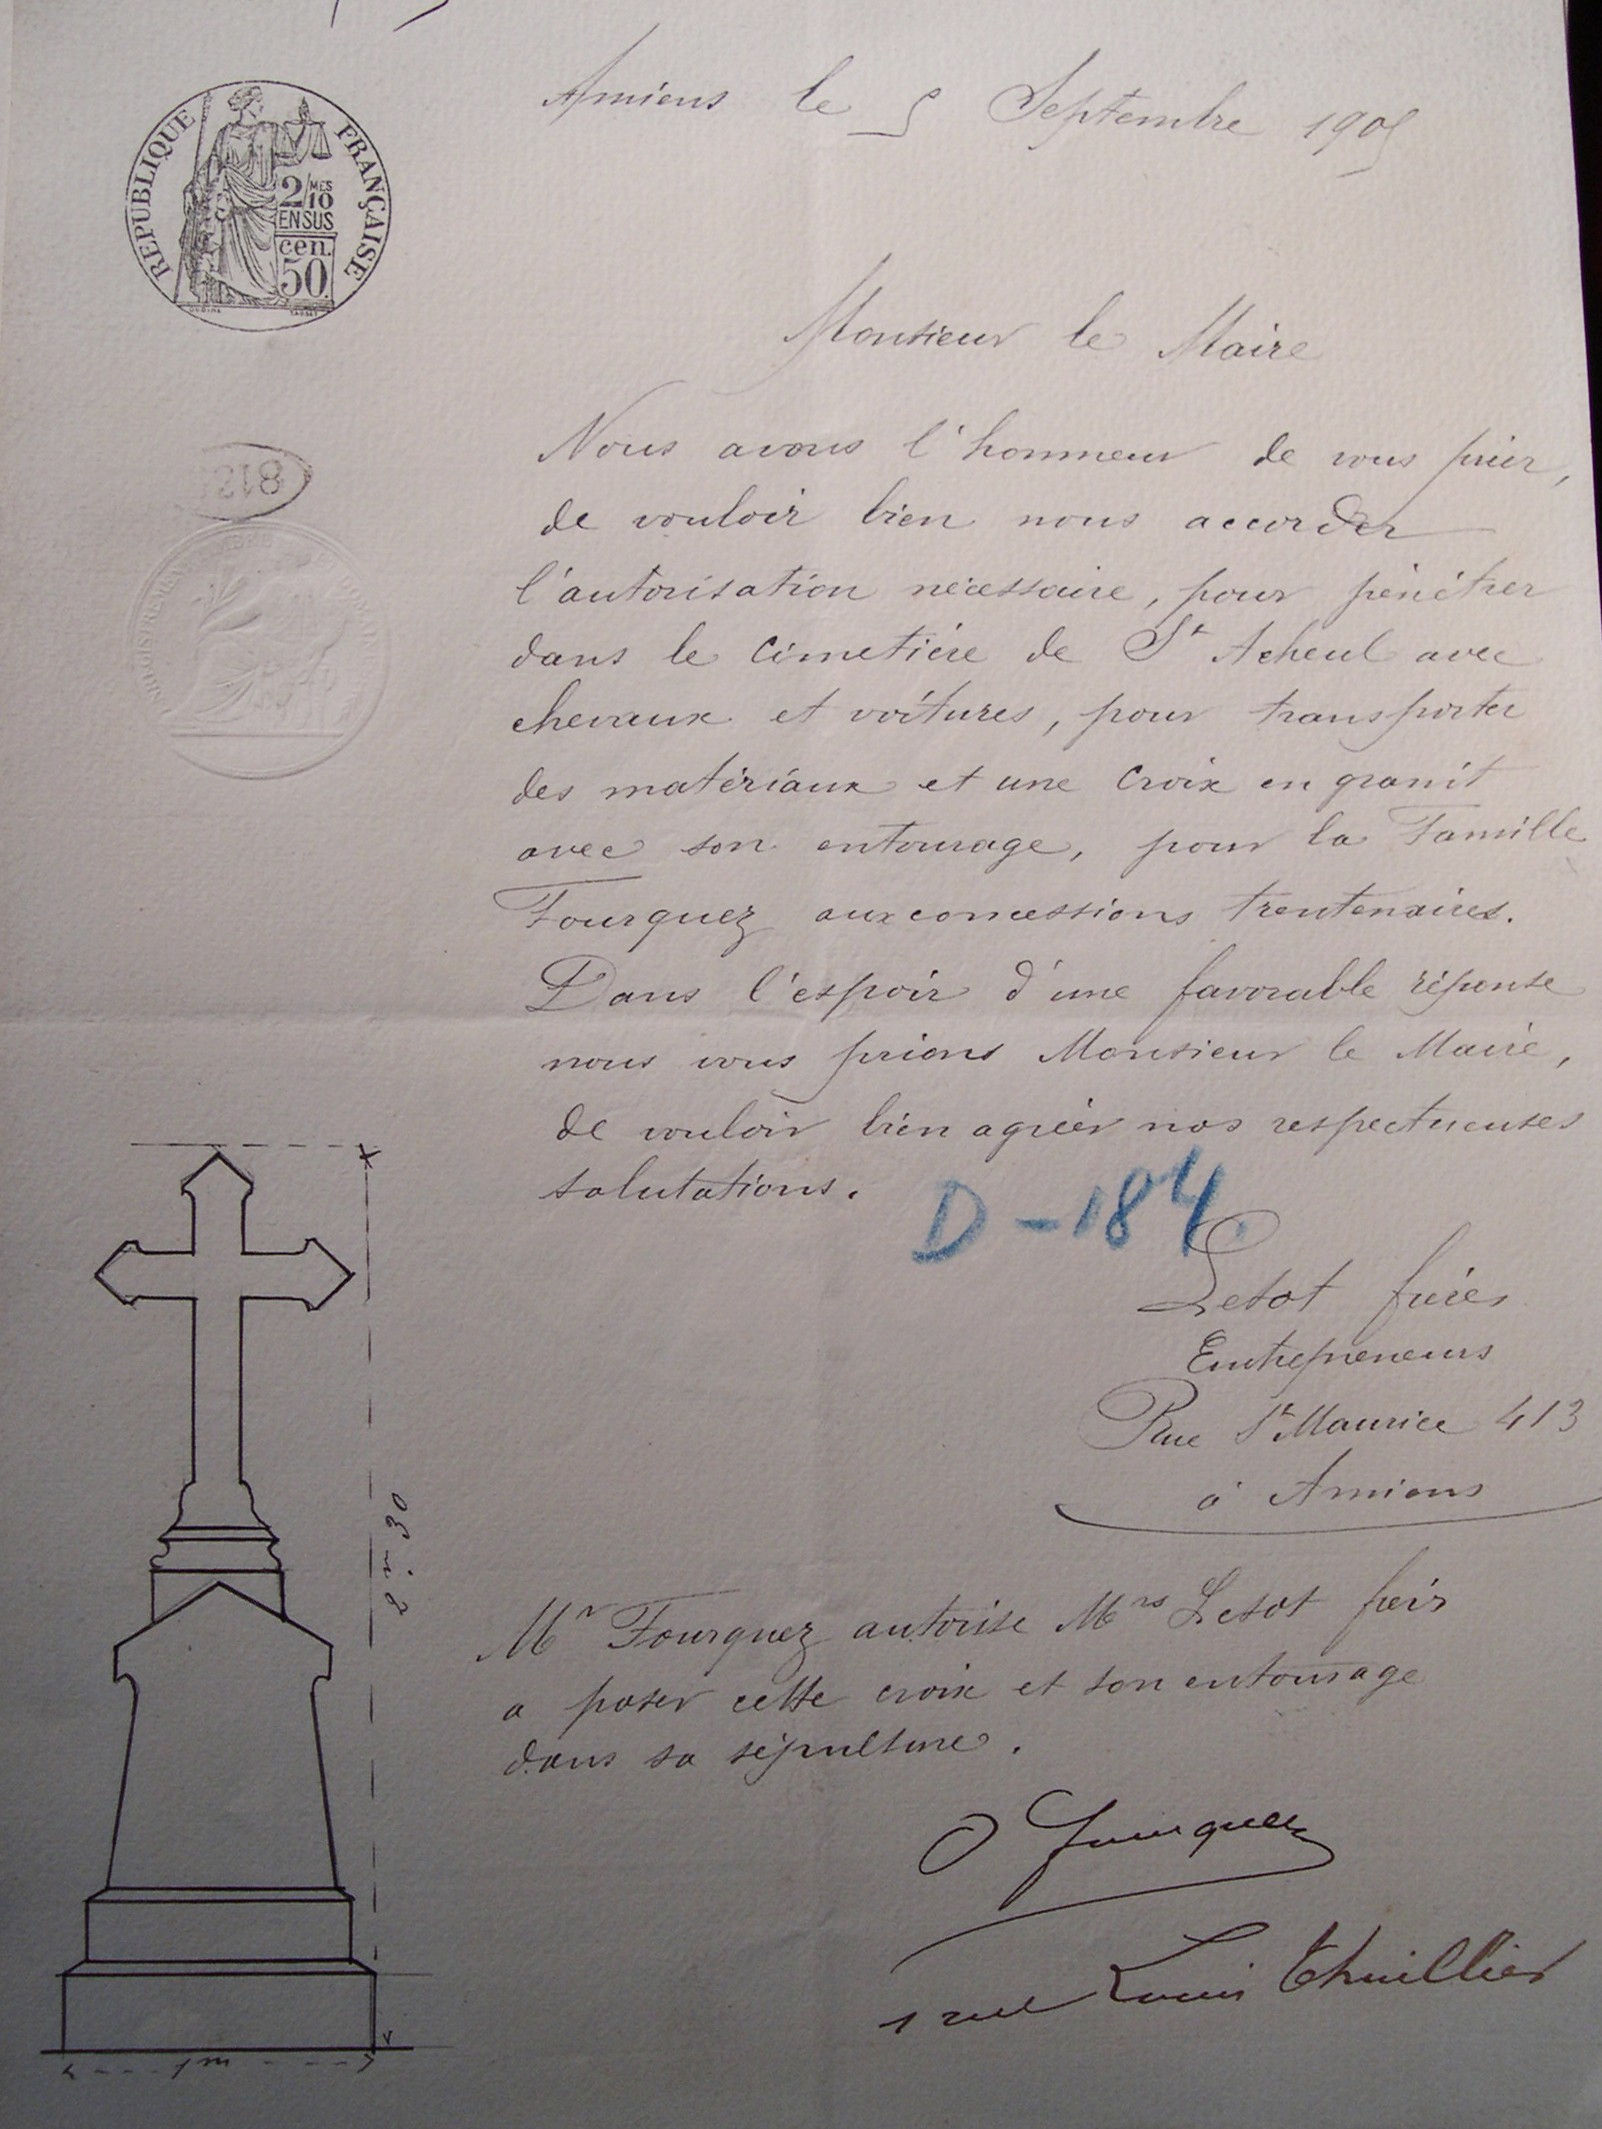 Amiens le 5 Septembre 1905
RÉPUBLIQUE FRANÇAISE
2/10 MES
EN SUS
cen.
50
Monsieur le Maire
Nous avons l'honneur de vous prier,
de vouloir bien nous accorder
l'autorisation nécessaire, pour pénétrer
dans le Cimetière de St Acheul avec
chevaux et voitures, pour transporter
des matériaux et une Croix en granit
avec son entourage, pour la Famille
Fourquez aux concessions trentenaires.
Dans l'espoir d'une favorable réponse
nous vous prions Monsieur le Maire,
de vouloir bien agréer nos respectueuses
salutations.
D-184.
Letot frères
Entrepreneurs
Rue St Maurice 413
à Amiens
2m.30
1m
Mr Fourquez autorise Mrs Letot frères
a poser cette croix et son entourage
dans sa sépulture.
O Fourquez
1 rue Louis Thuillier